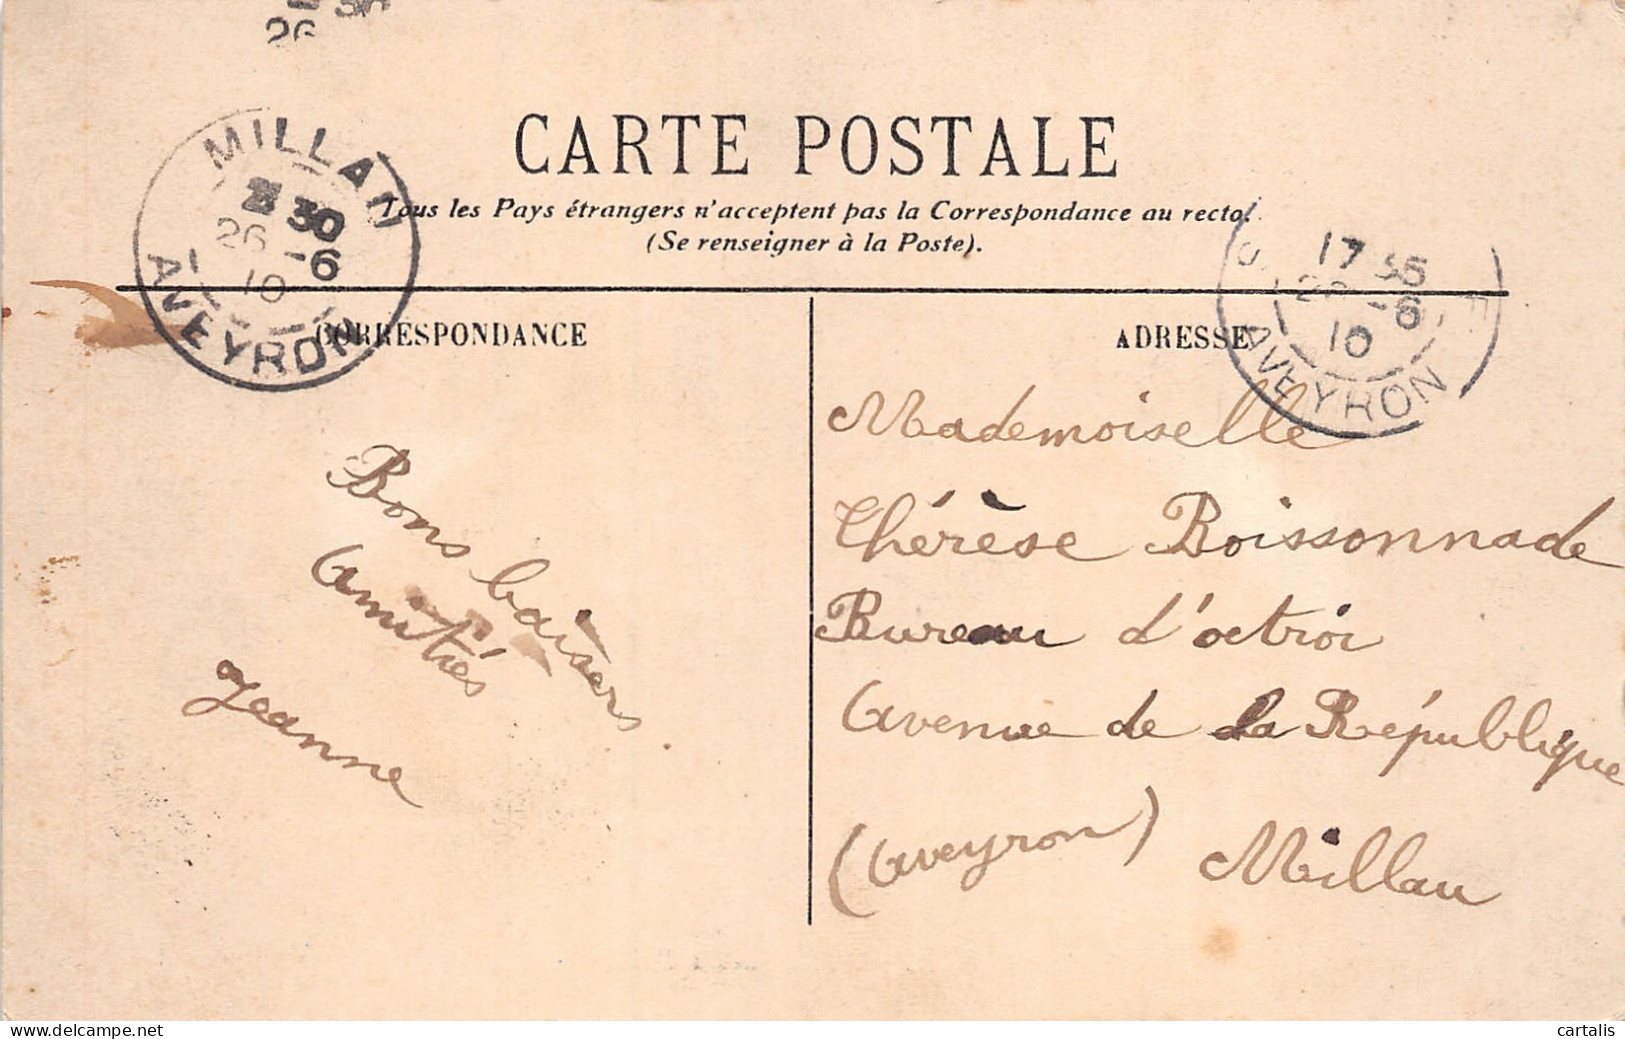 CARTE POSTALE
Tous les Pays étrangers n'acceptent pas la Correspondance au recto.
(Se renseigner à la Poste).
MILLAU
30
26 -6
10
AVEYRON
17 35
-6
10
AVEYRON
CORRESPONDANCE
Bons baisers.
Amitiés
Jeanne
ADRESSE
Mademoiselle
Thérèse Boissonnade
Bureau d'octroi
Avenue de la République
(Aveyron) Millau
cartalis